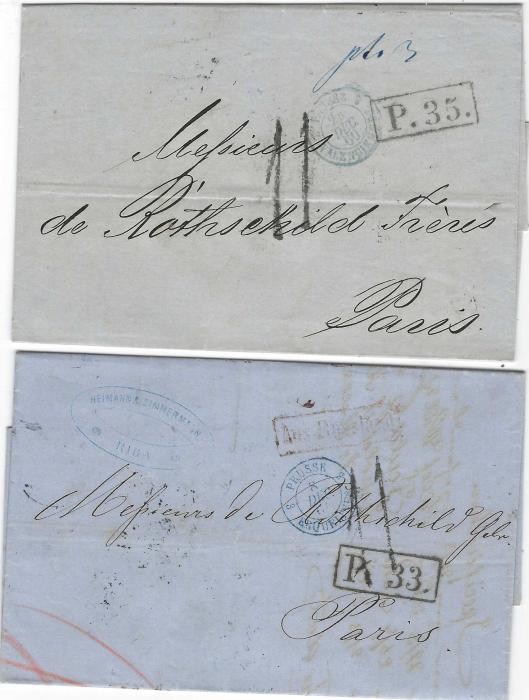 pf. 3
P. 35.
11
Messieurs
de Rothschild Frères
Paris.
HEIMANN & ZIMMERMANN
RIGA
Aus Russland
PRUSSE
8
DEC
11
Messieurs de Rothschild Gebr.
P. 33.
Paris.